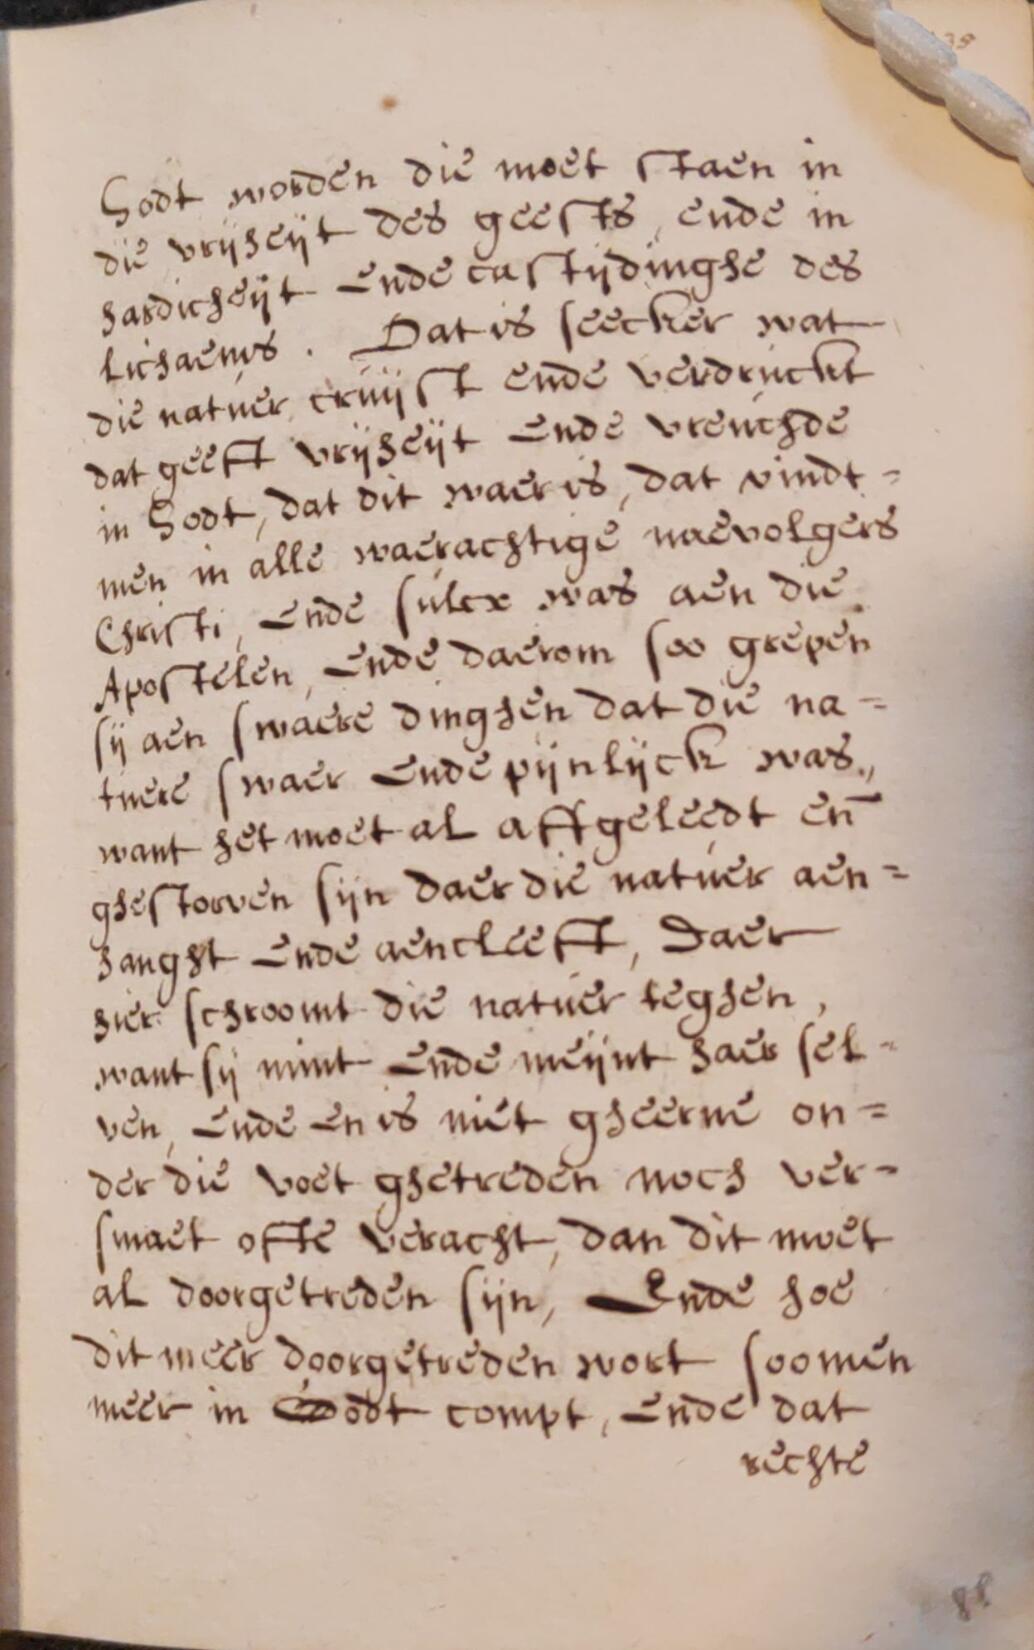 Godt worden die moet staen in
die vrijheijt des geests, ende in
hardicheijt ende castijdinghe des
lichaems. Dat is seecker wat
die natuer cruijst ende verdruckt
dat geeft vrijheijt ende vreuchde
in Godt, dat dit waer is, dat vindt=
men in alle waerachtige naevolgers
Christi, ende sulcx was aen die
Apostelen, ende daerom soo grepen
sij aen swaere dinghen dat die na=
tuere swaer ende pijnlijck was,,
want het moet al affgeleedt en̄
ghestorven sijn daer die natuer aen=
hanght ende aencleeft, Daer
hier schroomt die natuer teghen,
want sij mint ende meijnt haer sel=
ven, ende en is niet gheerne on=
der die voet ghetreden noch ver=
smaet ofte veracht, dan dit moet
al doorgetreden sijn, Ende hoe
dit meer doorgetreden wort soo men
meer in Godt compt, ende dat
rechte
88